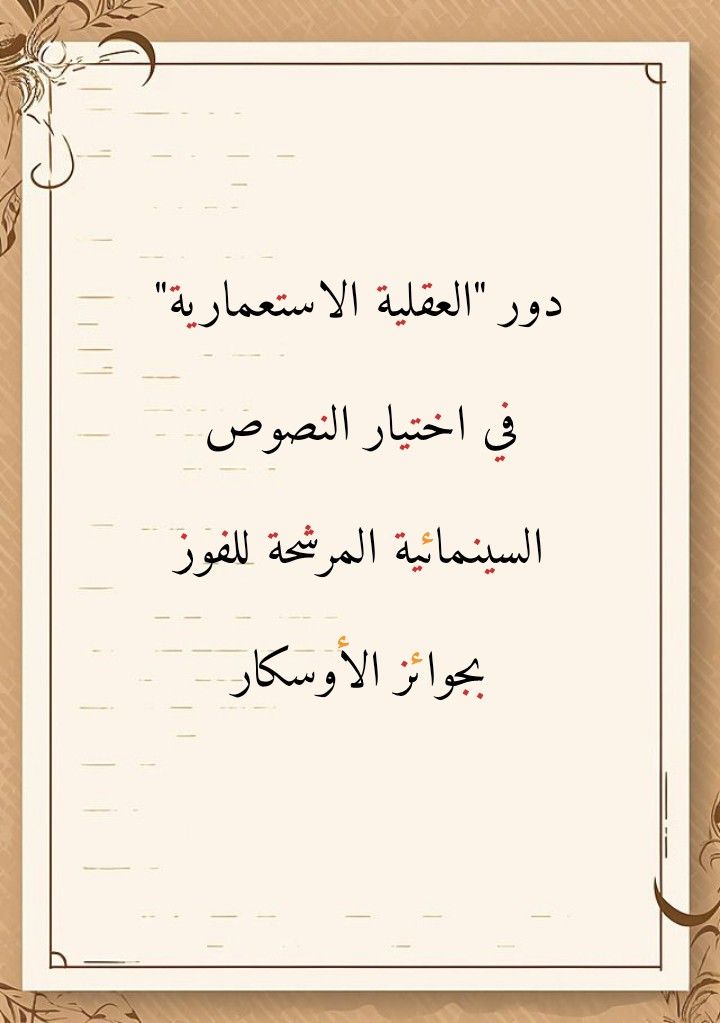 دور "العقلية الاستعمارية"
في اختيار النصوص
السينمائية المرشحة للفوز
بجوائز الأوسكار